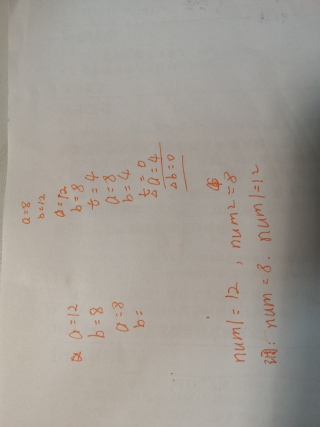 a=8
b=12
a=12
b=8
t=4
a=8
b=4
t=0
a=4
b=0
a=12
b=8
a=8
b=
num1=12, num2=8
num=8. num1=12